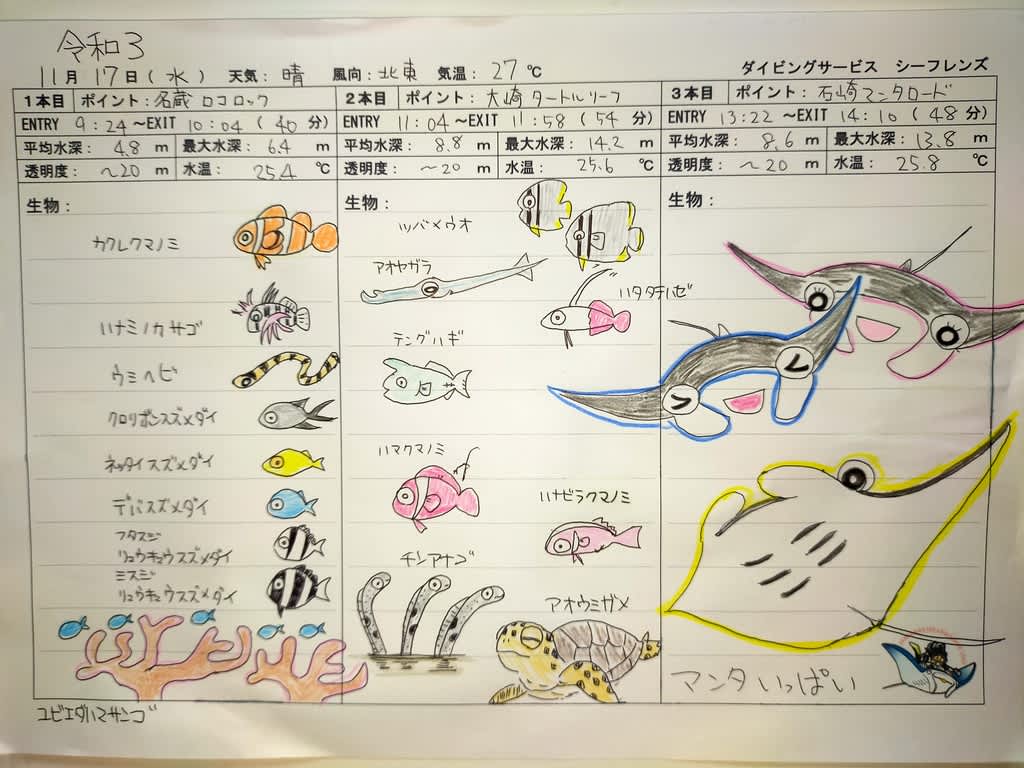 令和3
11月 17日(水) 天気: 晴 風向: 北東 気温: 27℃
ダイビングサービス シーフレンズ
1本目 ポイント: 名蔵 ロコロック
ENTRY 9:24 ~EXIT 10:04 (40分)
平均水深: 4.8 m 最大水深: 6.4 m
透明度: ~20 m 水温: 25.4 ℃
生物:
カクレクマノミ
ハナミノカサゴ
ウミヘビ
クロリボンスズメダイ
ネッタイスズメダイ
デバスズメダイ
フタスジ
リュウキュウスズメダイ
ミスジ
リュウキュウスズメダイ
ユビエダハマサンゴ
2本目 ポイント: 大崎 タートルリーフ
ENTRY 11:04 ~EXIT 11:58 (54分)
平均水深: 8.8 m 最大水深: 14.2 m
透明度: ~20 m 水温: 25.6 ℃
生物:
ツバメウオ
アオヤガラ
ハタタテハゼ
テングハギ
ハマクマノミ
ハナビラクマノミ
チンアナゴ
アオウミガメ
3本目 ポイント: 石崎 マンタロード
ENTRY 13:22 ~EXIT 14:10 (48分)
平均水深: 8.6 m 最大水深: 13.8 m
透明度: ~20 m 水温: 25.8 ℃
生物:
マンタいっぱい